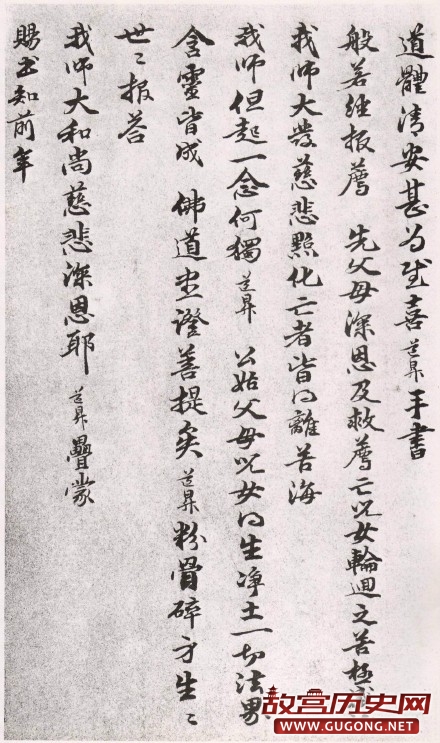 道體清安甚为慰喜道昇手書
般若經报薦 先父母深恩及救薦亡兒女輪迴之苦極感
我师大發慈悲點化亡者皆得離苦海
我师但起一念何獨道昇 公姑父母兒女得生净土一切法界
含靈皆成 佛道證菩提矣道昇粉骨碎身生〻
世〻报荅
我师大和尚慈悲深恩耶 道昇疊蒙
賜书知前年
故宫历史网
WWW.GUGONG.NET